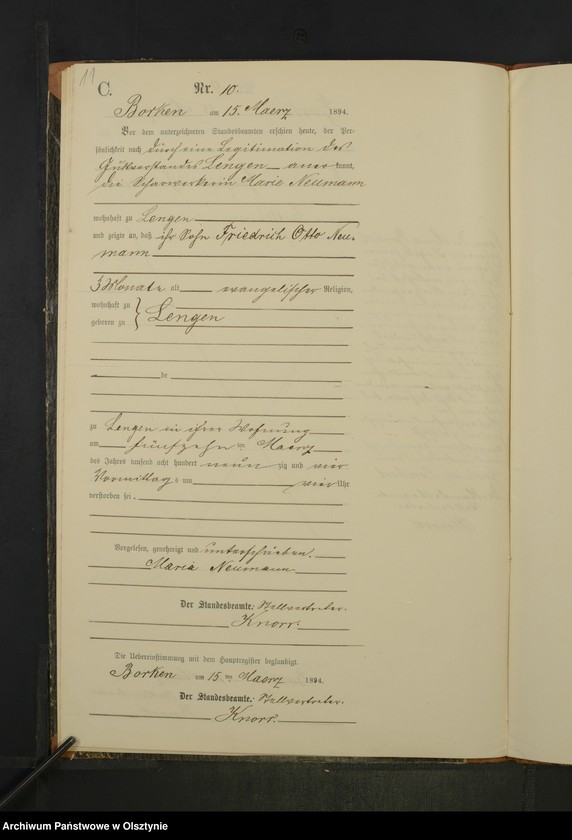 11
C. Nr. 10.
Borken am 15. Maerz 1894.
Vor dem unterzeichneten Standesbeamten erschien heute, der Per-
sönlichkeit nach durch eine Legitimation des
Gutsvorstandes Lengen anerkannt,
die Scharwerkerin Marie Neumann
wohnhaft zu Lengen
und zeigte an, daß ihr Sohn Friedrich Otto Neu-
mann
5 Monate alt evangelischer Religion,
wohnhaft zu
geboren zu } Lengen
de
zu Lengen in ihrer Wohnung
am fünfzehnten Maerz
des Jahres tausend acht hundert neunzig und vier
Vormittags um vier Uhr
verstorben sei.
Vorgelesen, genehmigt und unterschrieben.
Maria Neumann
Der Standesbeamte: Stellvertreter.
Knorr.
Die Uebereinstimmung mit dem Hauptregister beglaubigt.
Borken am 15ten Maerz 1894.
Der Standesbeamte: Stellvertreter.
Knorr.
Archiwum Państwowe w Olsztynie